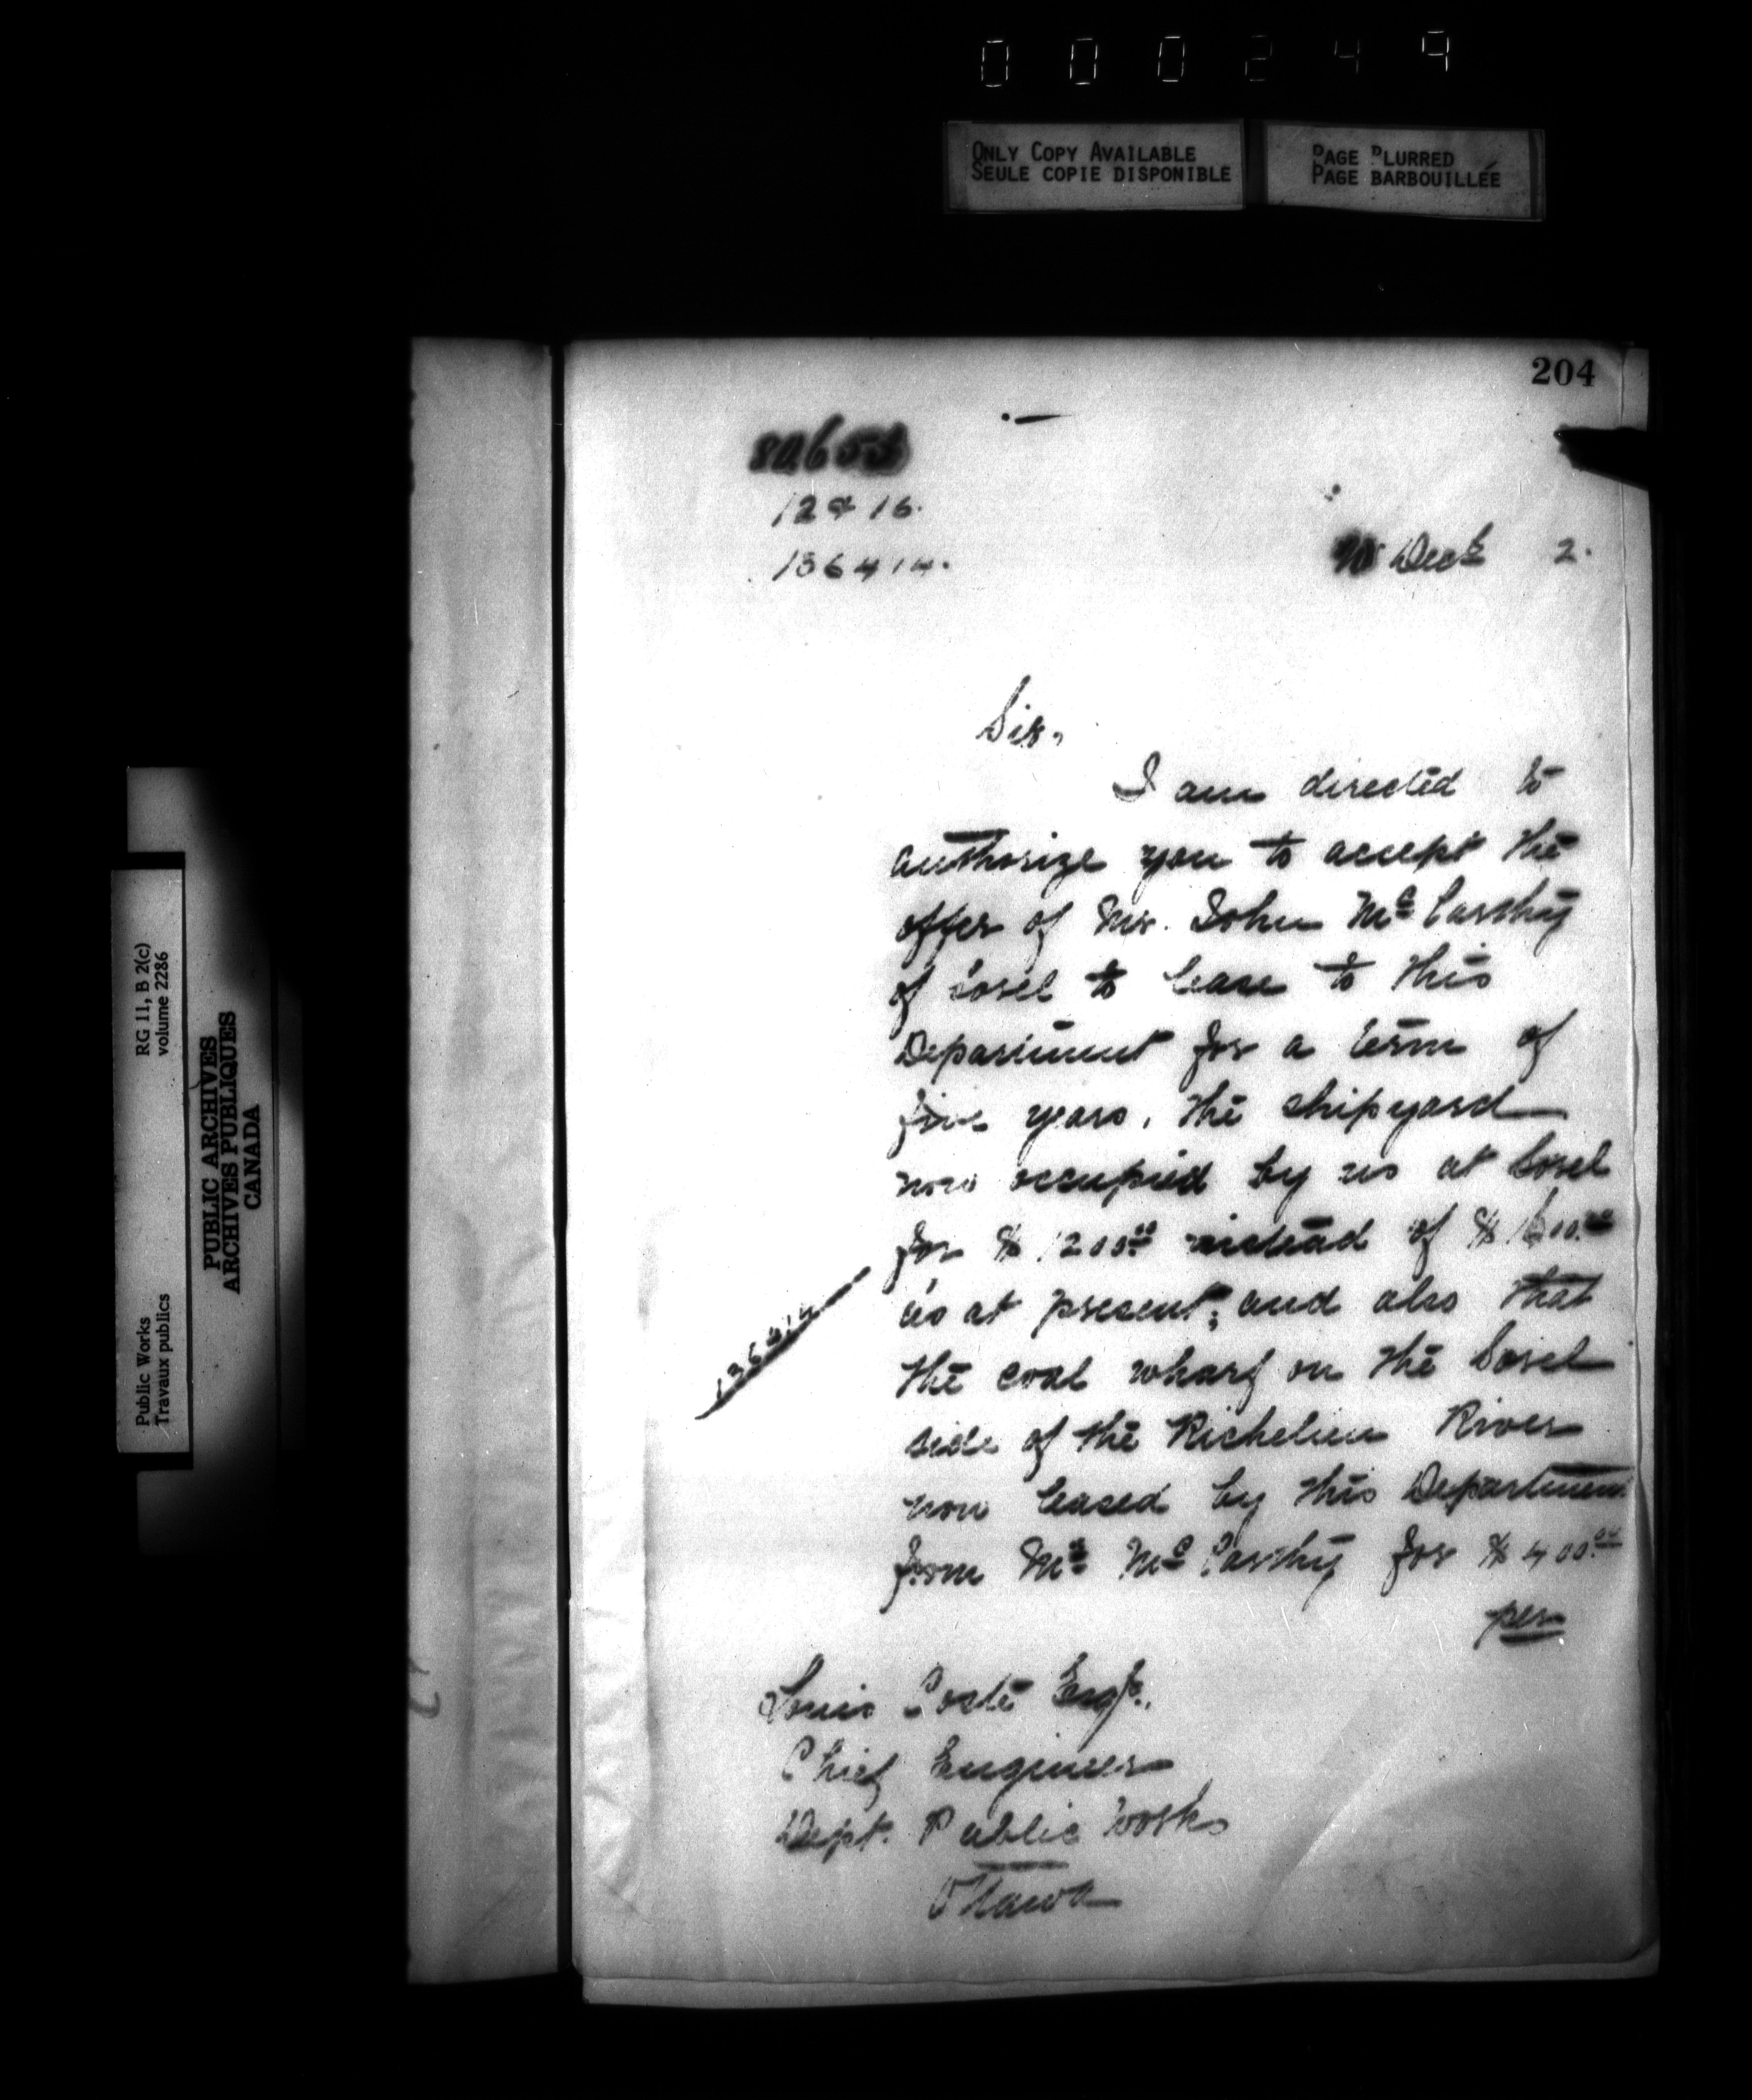 000249
ONLY COPY AVAILABLE
SEULE COPIE DISPONIBLE
PAGE BLURRED
PAGE BARBOUILLÉE
204
12 & 16.
136414.
Dec 2.
Sir,
I am directed to
authorize you to accept the
offer of Mr. John Mc Carthy
of Sorel to lease to this
Department for a term of
five years, the shipyard
now occupied by us at Sorel
for $ 1200.00 instead of $ 1600.00
as at present; and also that
the coal wharf on the Sorel
side of the Richelieu River
now leased by this Department
from Mr Mc Carthy for $ 400.00
per
136414
Louis Coste Esqr.,
Chief Engineer
Dept. Public Works
Ottawa
Public Works
Travaux publics
RG 11, B 2(c)
volume 2286
PUBLIC ARCHIVES
ARCHIVES PUBLIQUES
CANADA